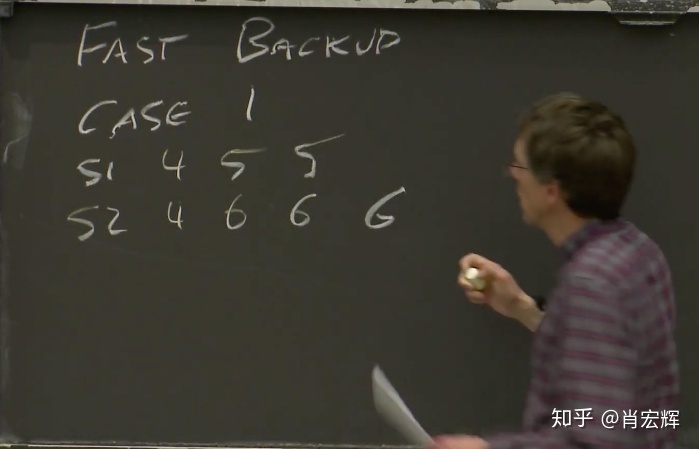 FAST BACKUP
CASE 1
S1 4 5 5
S2 4 6 6 6
知乎 @肖宏辉